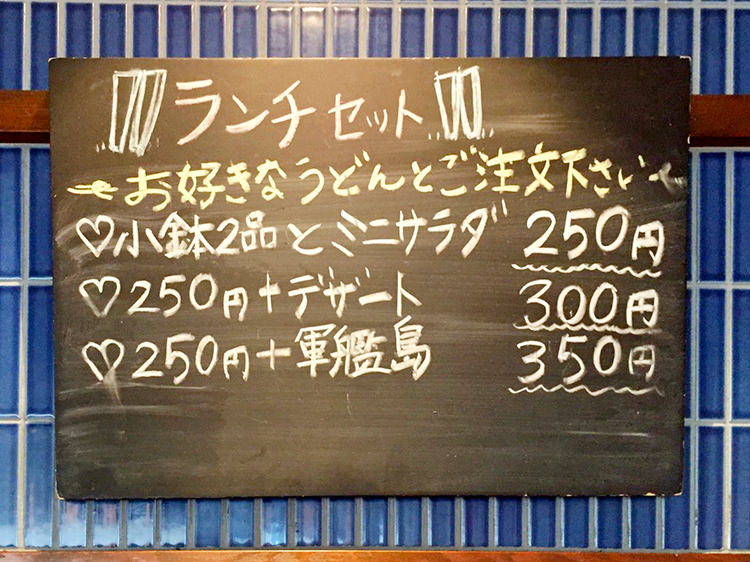 ランチセット
お好きなうどんとご注文下さい
♡小鉢2品とミニサラダ 250円
♡250円+デザート 300円
♡250円+軍艦島 350円